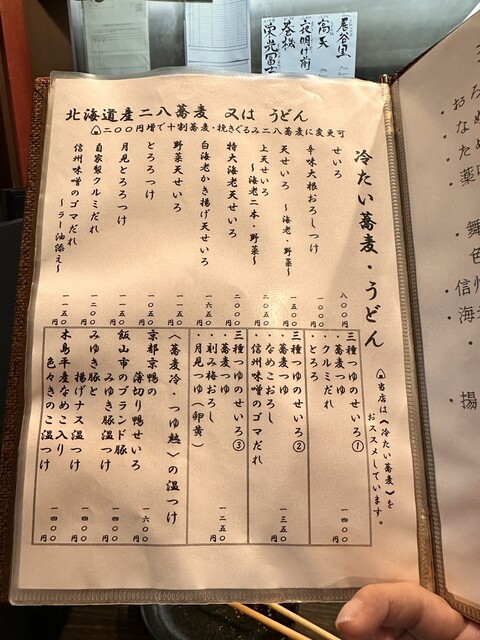 居谷里
高天
夜明け前
栄光冨士
北海道産二八蕎麦 又は うどん
二〇〇円増で十割蕎麦・挽きぐるみ二八蕎麦に変更可
冷たい蕎麦・うどん
せいろ 八〇〇円
辛味大根おろしつけ 一〇〇〇円
天せいろ 〜海老・野菜〜 一五〇〇円
上天せいろ 〜海老二本・野菜〜 二〇五〇円
特大海老天せいろ 二〇〇〇円
白海老かき揚げ天せいろ 一六五〇円
野菜天せいろ 一一五〇円
とろろつけ 一〇五〇円
月見とろろつけ 一一五〇円
自家製クルミだれ 一二〇〇円
信州味噌のゴマだれ 一一五〇円
〜ラー油添え〜
当店は《冷たい蕎麦》を
おススメしています。
三種つゆのせいろ①
・蕎麦つゆ
・クルミだれ
・とろろ
一四〇〇円
三種つゆのせいろ②
・蕎麦つゆ
・なめこおろし
・信州味噌のゴマだれ
一三五〇円
三種つゆのせいろ③
・蕎麦つゆ
・刻み梅おろし
・月見つゆ(卵黄)
一二五〇円
《蕎麦冷・つゆ熱》の温つけ
京都京鴨の
薄切り鴨せいろ 一六〇〇円
飯山市のブランド豚
みゆき豚温つけ 一四〇〇円
みゆき豚と
揚げナス温つけ 一四〇〇円
木島平産なめこ入り
色々きのこ温つけ 一四〇〇円
・おろ
・なめ
・ため
・薬味
・舞
色
・信州
・海老
・揚